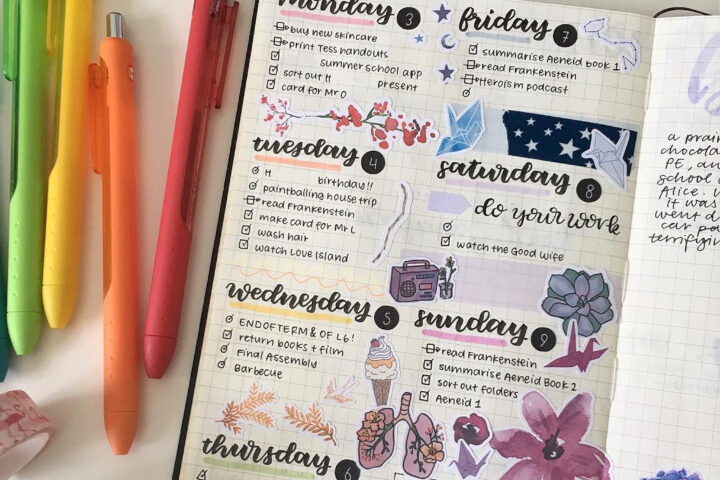 monday 3
buy new skincare
print Tess handouts
summer school app
sort out H present
card for Mr O
tuesday 4
H birthday!!
paintballing house trip
read Frankenstein
make card for Mr L
wash hair
watch Love Island
wednesday 5
END OF TERM & OF L6!
return books + film
Final Assembly
Barbecue
thursday 6
friday 7
summarise Aeneid book 1
read Frankenstein
Heroism podcast
saturday 8
do your work
watch the Good Wife
sunday 9
read Frankenstein
summarise Aeneid Book 2
sort out folders
Aeneid 1
a prair
chocola
PE, an
school
Alice.
it was
went d
car pa
terrifyin